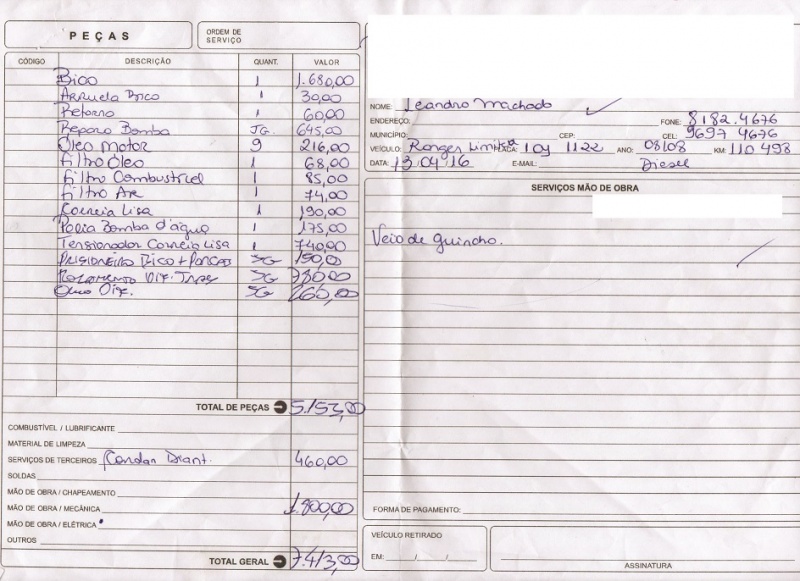 PEÇAS
ORDEM DE
SERVIÇO
CÓDIGO DESCRIÇÃO QUANT. VALOR
Bico 1 1.680,00
Arruela Bico 1 30,00
Retorno 1 60,00
Reparo Bomba JG. 645,00
Óleo Motor 9 216,00
Filtro Óleo 1 68,00
Filtro Combustivel 1 85,00
Filtro Ar 1 74,00
Correia Lisa 1 190,00
Polia Bomba d'agua 1 175,00
Tensionador Correia Lisa 1 740,00
Prisioneiro Bico + Porcas JG 190,00
Rolamento Dif. Tras. JG 730,00
Dif. JG 260,00
TOTAL DE PEÇAS 5.153,00
COMBUSTÍVEL / LUBRIFICANTE
MATERIAL DE LIMPEZA
SERVIÇOS DE TERCEIROS Cardan Diant. 460,00
SOLDAS
MÃO DE OBRA / CHAPEAMENTO
MÃO DE OBRA / MECÂNICA 1.800,00
MÃO DE OBRA / ELÉTRICA
OUTROS
TOTAL GERAL 7.413,00
NOME: Leandro Machado
ENDEREÇO: FONE: 8182.4676
MUNICÍPIO: CEP: CEL: 9697 4676
VEÍCULO: Ranger Limited PLACA: 1122 ANO: 08/08 KM: 110 498
DATA: 13.04.16 E-MAIL: Diesel
SERVIÇOS MÃO DE OBRA
Veio de guincho.
FORMA DE PAGAMENTO:
VEÍCULO RETIRADO
EM: / /
ASSINATURA